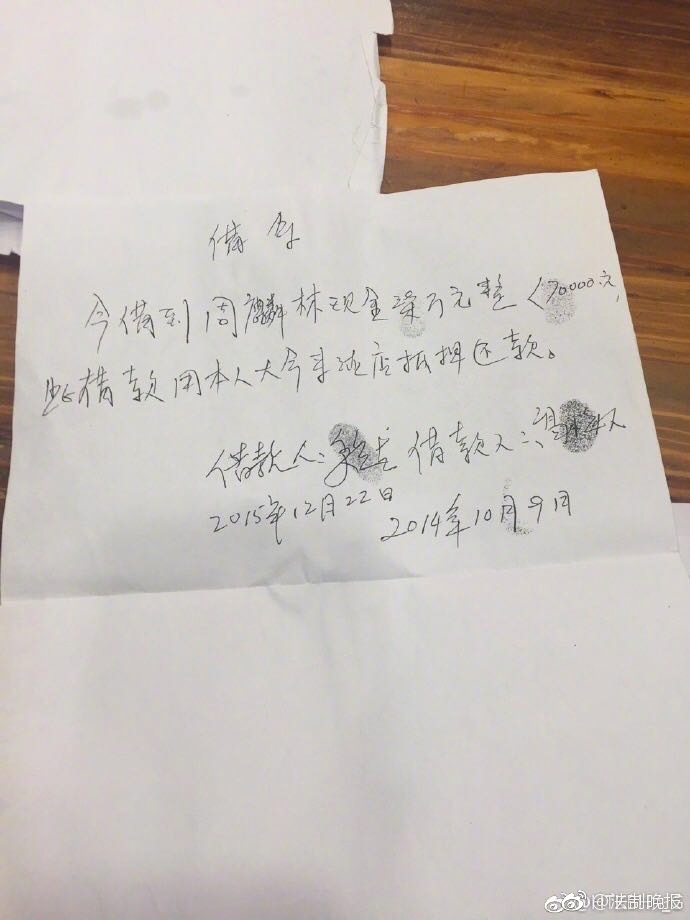 借条
今借到周麟林现金柒万元整(70000.元,
此借款用本人大今丰饭店抵押还款。
借款人: 借款人:
2015年12月22日 2014年10月9日
@法制晚报